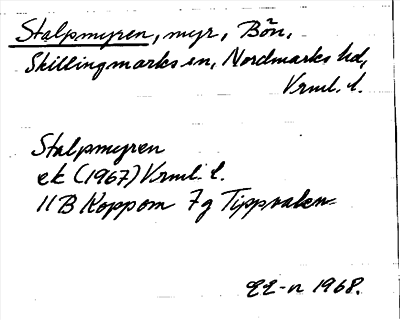 Stalpmyren, myr, Bön,
Skillingmarks sn, Nordmarks hd,
Vrml. l.
Stalpmyren
ek (1967) Vrml. l.
11B Koppom 7g Tippvalen
EE-n 1968.